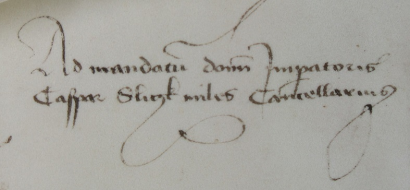 Ad mandatū domī Imperatoris
Caspar Sligk miles Cancellarius